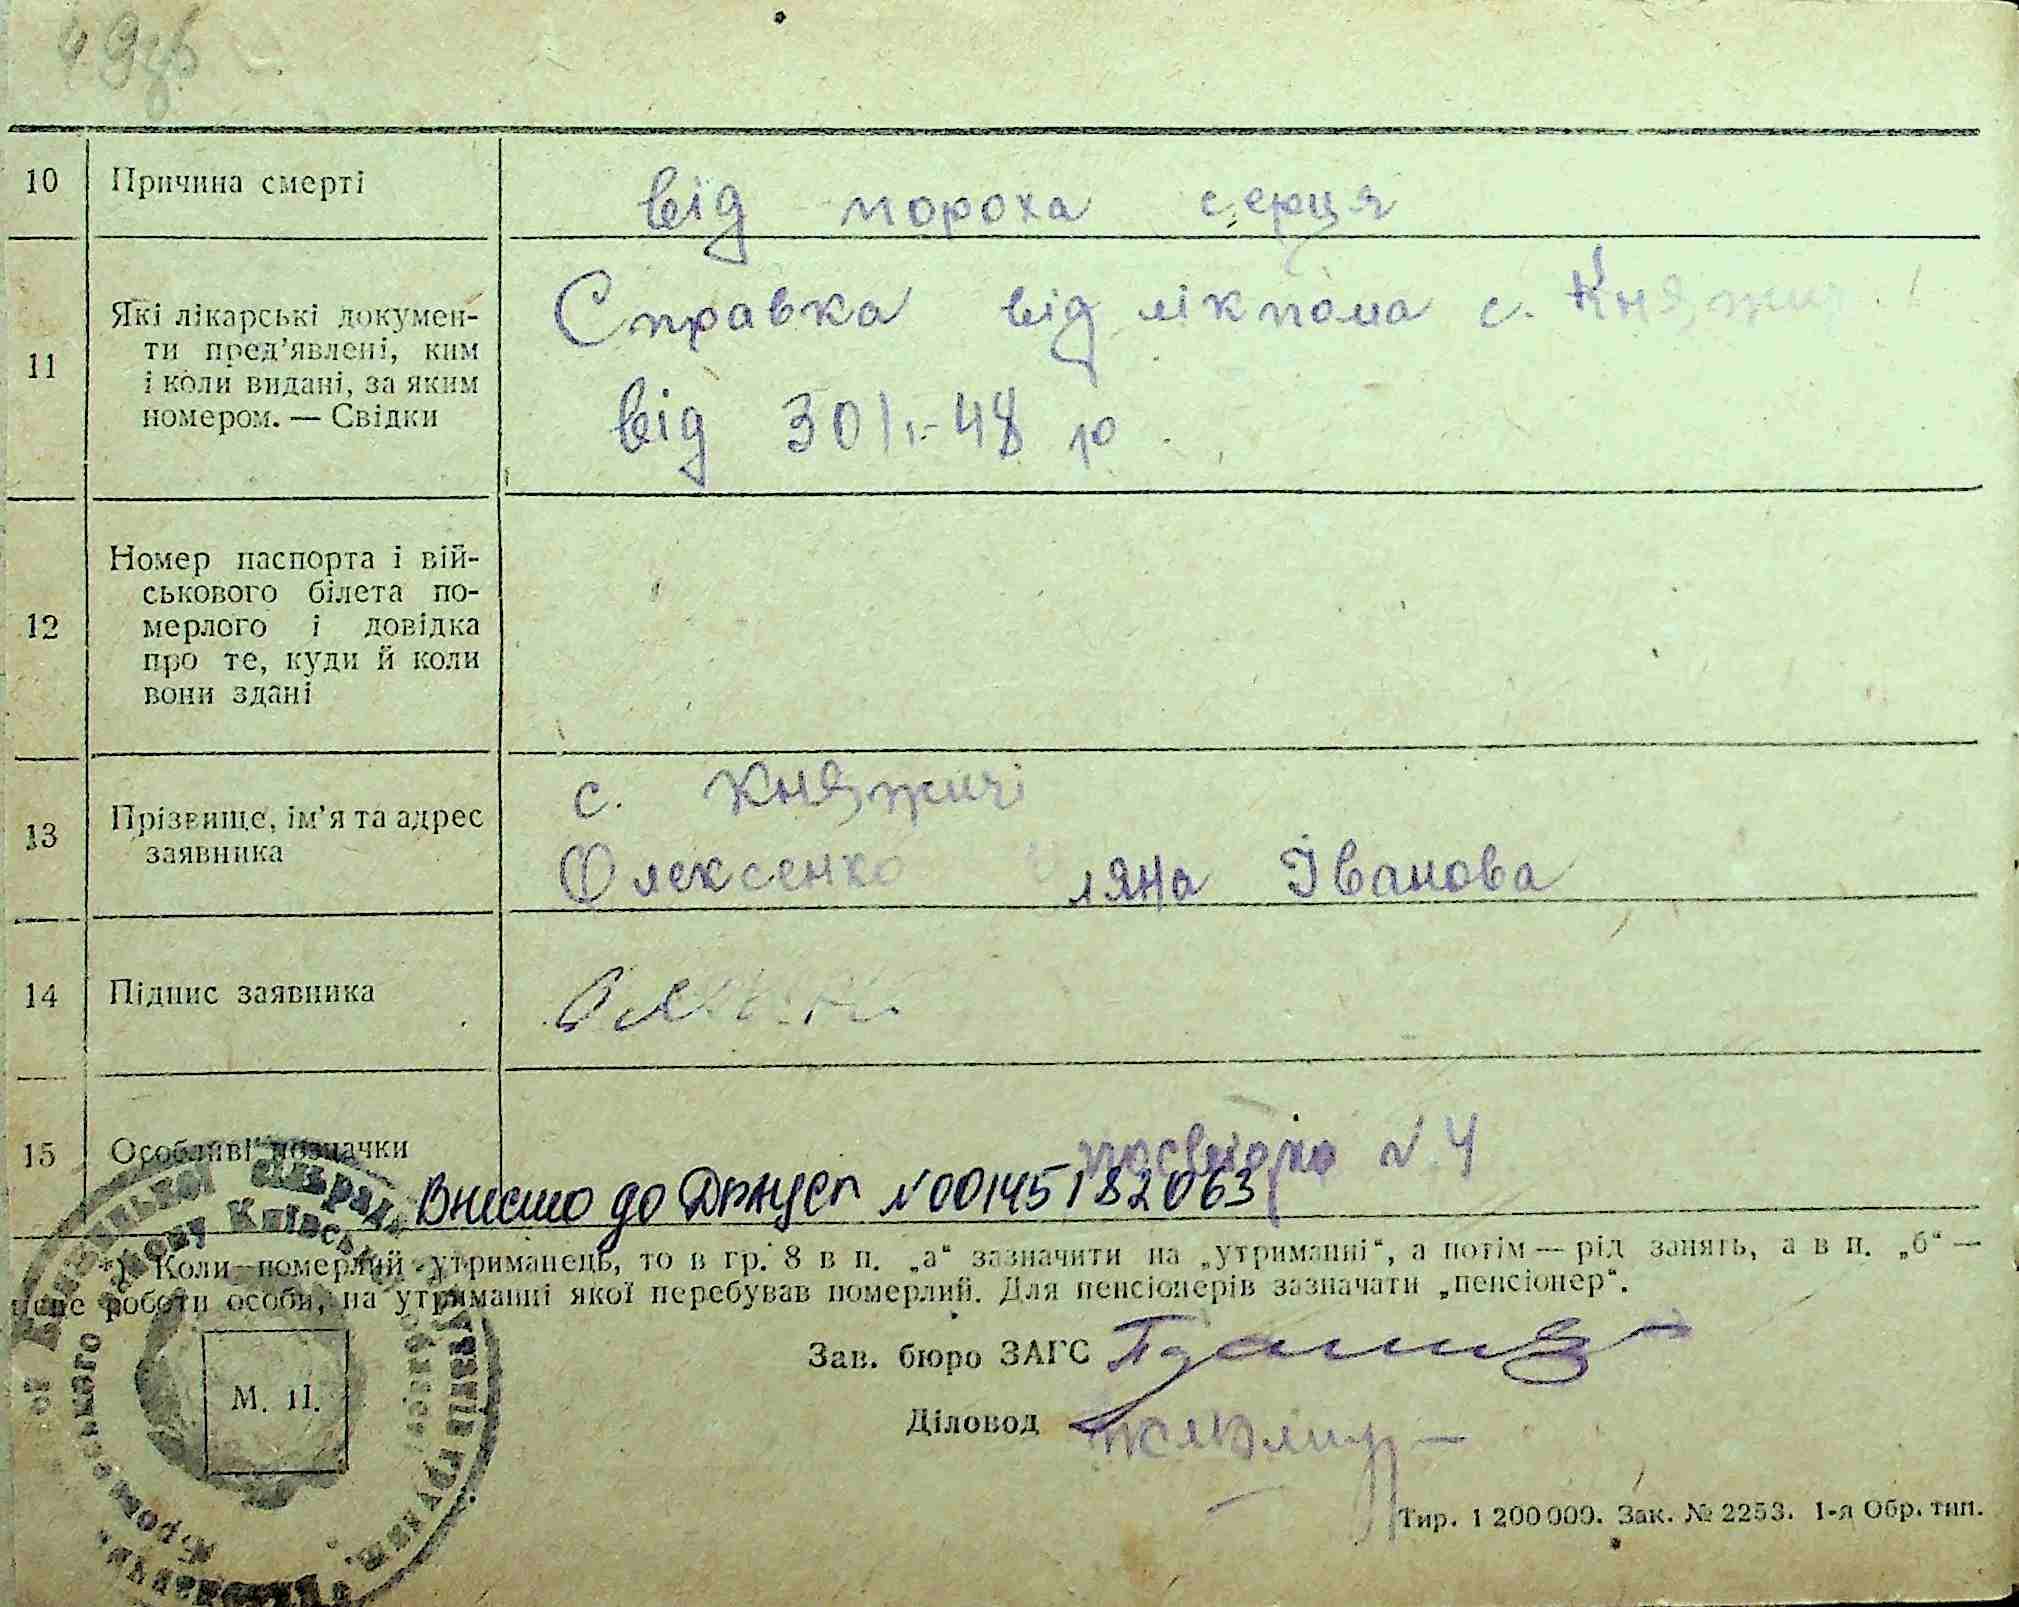 49
10 Причина смерті від пороха серця
11 Які лікарські докумен-
ти пред’явлені, ким
і коли видані, за яким
номером. — Свідки
Справка від лікпома с. Княжичі
від 30/I-48 р.
12 Номер паспорта і вій-
ськового білета по-
мерлого і довідка
про те, куди й коли
вони здані
13 Прізвище, ім’я та адрес
заявника
с. Княжичі
Олексенко Уляна Іванова
14 Підпис заявника
15 Особливі позначки
посвідка №4
Внесено до ДРАЦСГ №00145182063
*) Коли померлий утриманець, то в гр. 8 в п. „а“ зазначити на „утриманні“, а потім — рід занять, а в п. „б“ —
місце роботи особи, на утриманні якої перебував померлий. Для пенсіонерів зазначати „пенсіонер“.
Зав. бюро ЗАГС
Діловод
М. П.
Тир. 1 200 000. Зак. № 2253. 1-я Обр. тип.